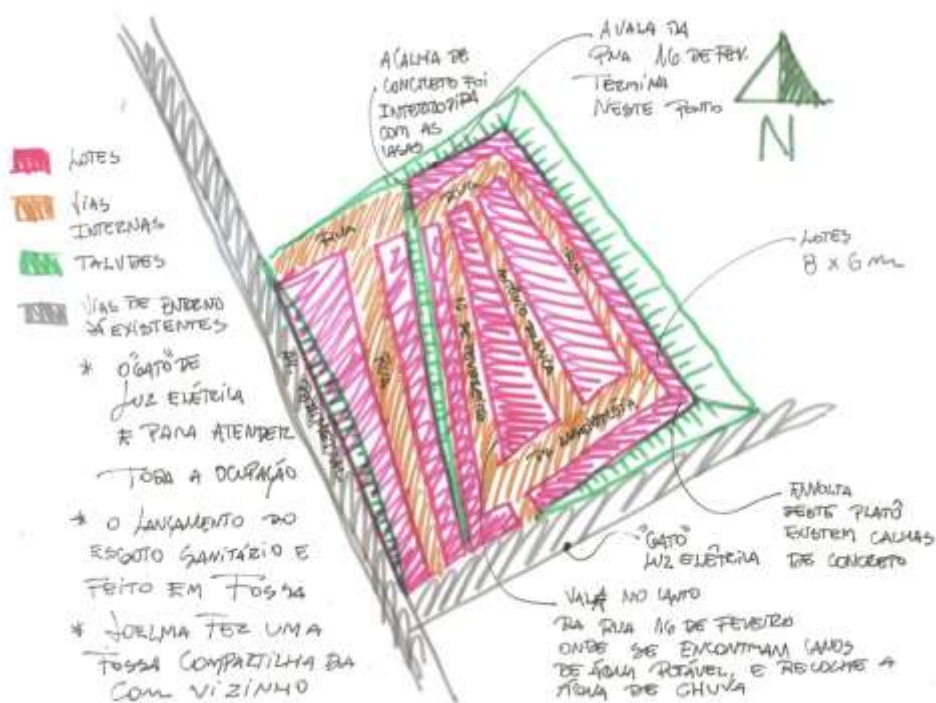 A CALHA DE
CONCRETO FOI
INTERROMPIDA
COM AS
CASAS
A VALA DA
RUA 16 DE FEV.
TERMINA
NESTE PONTO
N
LOTES
VIAS
INTERNAS
TALUDES
VIAS DE ENTORNO
JÁ EXISTENTES
* O "GATO" DE
LUZ ELÉTRICA
É PARA ATENDER
TODA A OCUPAÇÃO
* O LANÇAMENTO DO
ESGOTO SANITÁRIO É
FEITO EM FOSSA
* JOELMA FEZ UMA
FOSSA COMPARTILHADA
COM VIZINHO
RUA
RUA
RUA
16 DE FEVEREIRO
RUA
LOTES
8 x 6 m
ENVOLTA
DESTE PLATÔ
EXISTEM CALHAS
DE CONCRETO
"GATO"
LUZ ELÉTRICA
VALA NO CANTO
DA RUA 16 DE FEVEIRO
ONDE SE ENCONTRAM CANOS
DE ÁGUA POTÁVEL, E RECOLHE A
ÁGUA DE CHUVA